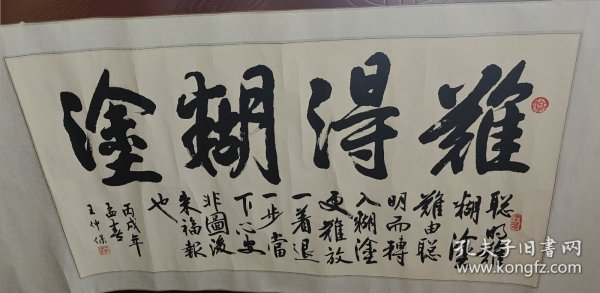 難得糊塗
聪明難
糊塗
難由聪
明而轉
入糊塗
更難放
一着退
一步當
下心安
非圖後
来福報
也
丙戌年
孟春
王仲保
孔夫子旧书网
www.kongfz.com